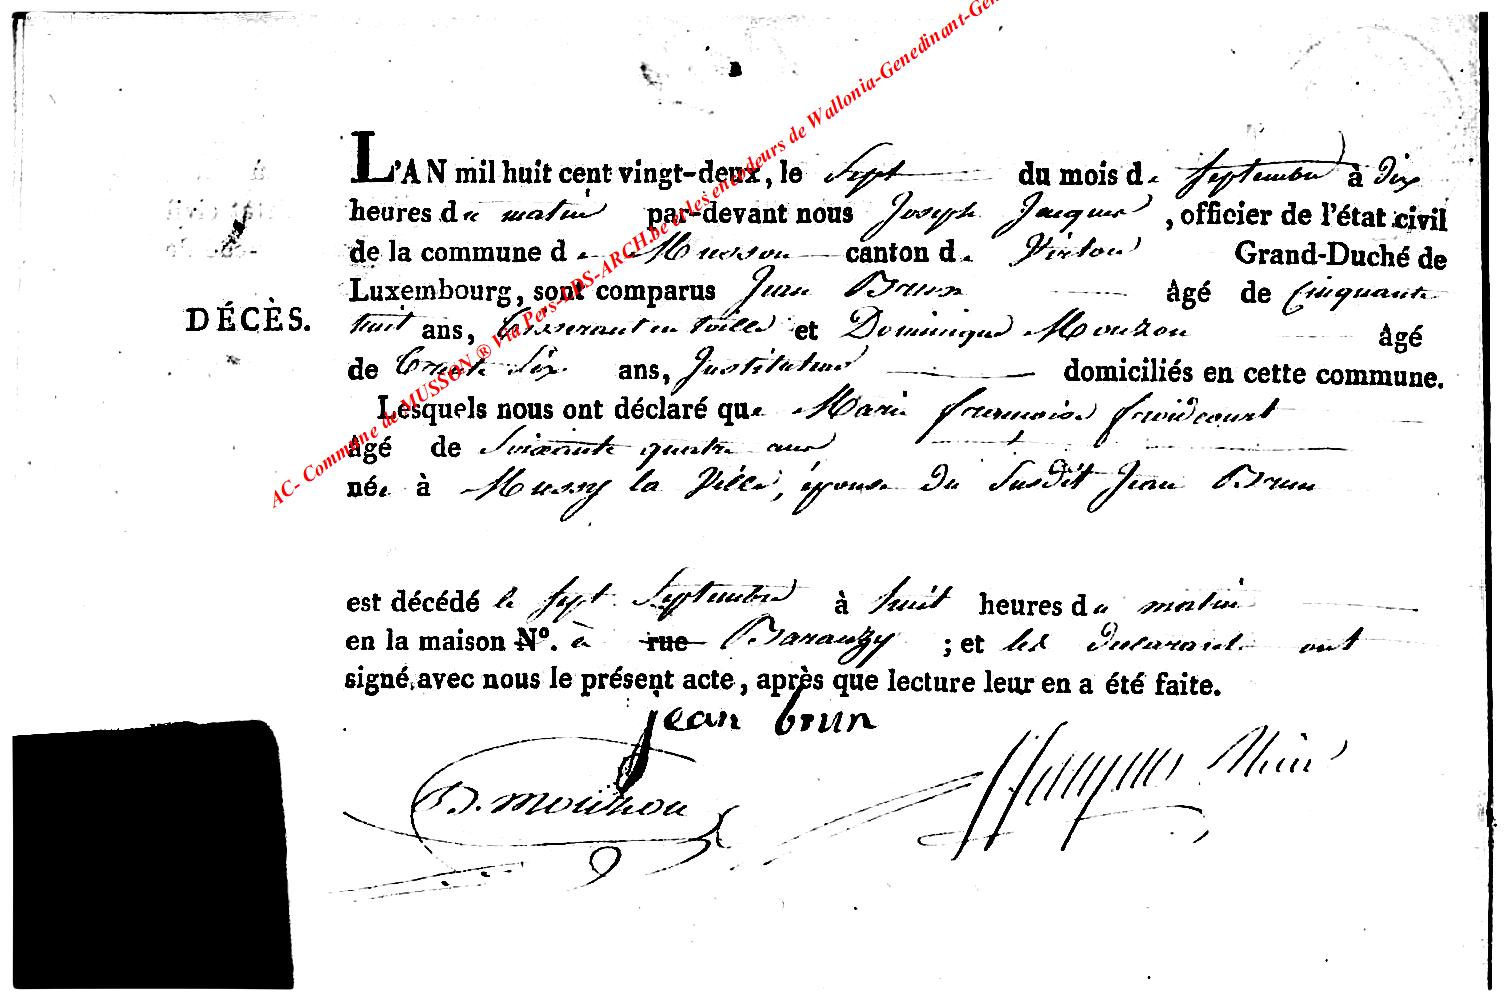 L'AN mil huit cent vingt-deux, le Sept du mois de Septembre à dix
heures du matin par-devant nous Joseph Jacques, officier de l'état civil
de la commune de Musson canton de Virton Grand-Duché de
Luxembourg, sont comparus Jean Brun âgé de Cinquante
DÉCÈS. huit ans, tisserant en toille et Dominique Mouzon âgé
de trente Six ans, Instituteur domiciliés en cette commune.
Lesquels nous ont déclaré que Marie françoise froidcourt
âgé de Soixante quatre ans
née à Mussy la Ville, épouse du Susdit Jean Brun
est décédé le Sept Septembre à huit heures du matin
en la maison N°. à rue Baranzy ; et les declarants ont
signé avec nous le présent acte, après que lecture leur en a été faite.
jean brun
D. mouzon
JJacques Maire
AC- Commune de MUSSON ® Via Pers-LDS-ARCH.be et les encodeurs de Wallonia-Genedinant-Gen